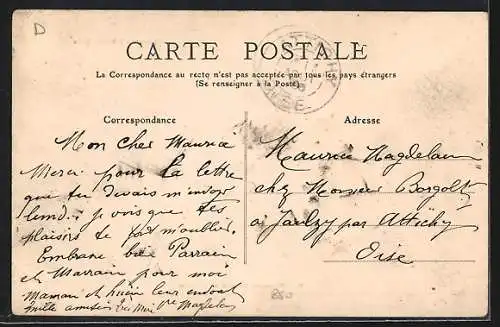 D
CARTE POSTALE
La Correspondance au recto n'est pas acceptée par tous les pays étrangers
(Se renseigner à la Poste)
Correspondance
Adresse
Mon cher Maurice
Merci pour la lettre
que tu devais m'envoyer
lundi. je vois que tes
plaisirs te font m'oublier.
Embrasse bien Parrain
et Marraine pour moi
maman et
mille amitiés
Maurice Magdelain
chez Monsieur Borgoltz
à Jaulzy par Attichy
Oise
250